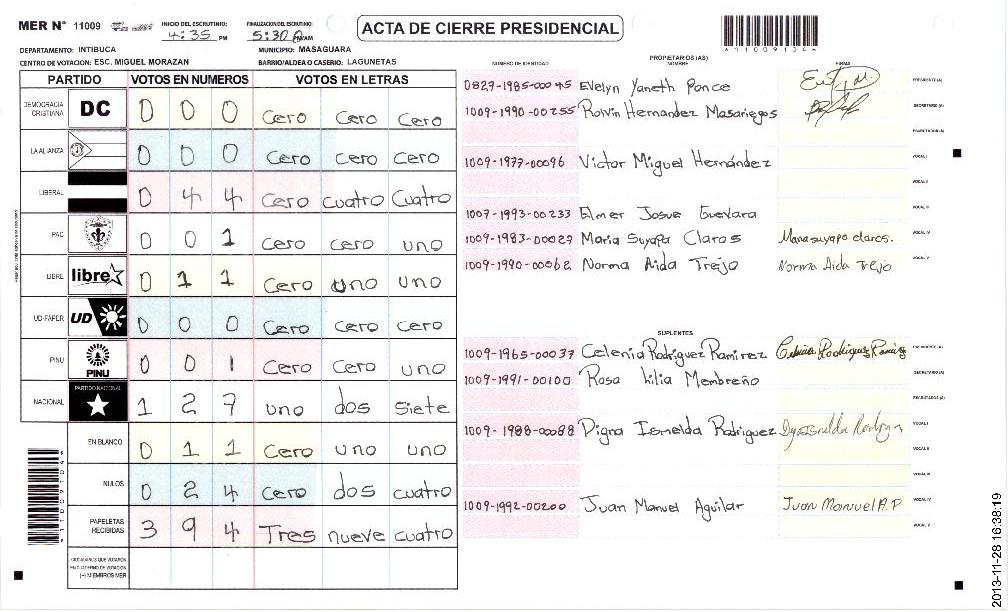 MER N° 11009 INICIO DEL ESCRUTINIO: 4:35 PM FINALIZACION DEL ESCRUTINIO: 5:30 PM/AM ACTA DE CIERRE PRESIDENCIAL
DEPARTAMENTO: INTIBUCA MUNICIPIO: MASAGUARA
CENTRO DE VOTACION: ESC. MIGUEL MORAZAN BARRIO/ALDEA O CASERIO: LAGUNETAS
PARTIDO VOTOS EN NUMEROS VOTOS EN LETRAS
DEMOCRACIA CRISTIANA DC 0 0 0 Cero Cero Cero
LA ALIANZA 0 0 0 Cero Cero Cero
LIBERAL 0 4 4 Cero Cuatro Cuatro
PAC 0 0 1 Cero cero uno
LIBRE libre 0 1 1 Cero uno uno
UD-FAPER UD 0 0 0 Cero cero cero
PINU PINU 0 0 1 Cero Cero uno
NACIONAL PARTIDO NACIONAL 1 2 7 uno dos siete
EN BLANCO 0 1 1 Cero uno uno
NULOS 0 2 4 Cero dos cuatro
PAPELETAS RECIBIDAS 3 9 4 Tres nueve cuatro
CIUDADANOS QUE VOTARON EN CUADERNO DE VOTACION (+) MIEMBROS MER
PROPIETARIOS (AS)
NUMERO DE IDENTIDAD NOMBRE FIRMA
0827-1985-00045 Evelyn Yaneth Ponce PRESIDENTE (A)
1009-1990-00255 Rolvin Hernandez Masariegos SECRETARIO (A)
ESCRUTADOR (A)
1009-1977-00096 Victor Miguel Hernández VOCAL I
VOCAL II
1007-1993-00233 Elmer Josue Guevara VOCAL III
1009-1983-00029 Maria Suyapa Claros Maria suyapa claros. VOCAL IV
1009-1990-00062 Norma Aida Trejo Norma Aida Trejo VOCAL V
SUPLENTES
1009-1965-00037 Celenia Rodriguez Ramirez Celenia Rodriguez Ramirez PRESIDENTE (A)
1009-1991-00100 Rosa Lilia Membreño SECRETARIO (A)
ESCRUTADOR (A)
1009-1988-00088 Digna Ismelda Rodriguez VOCAL I
VOCAL II
VOCAL III
1009-1992-00200 Juan Manuel Aguilar Juan Manuel A.P VOCAL IV
VOCAL V
2013-11-28 16:38:19